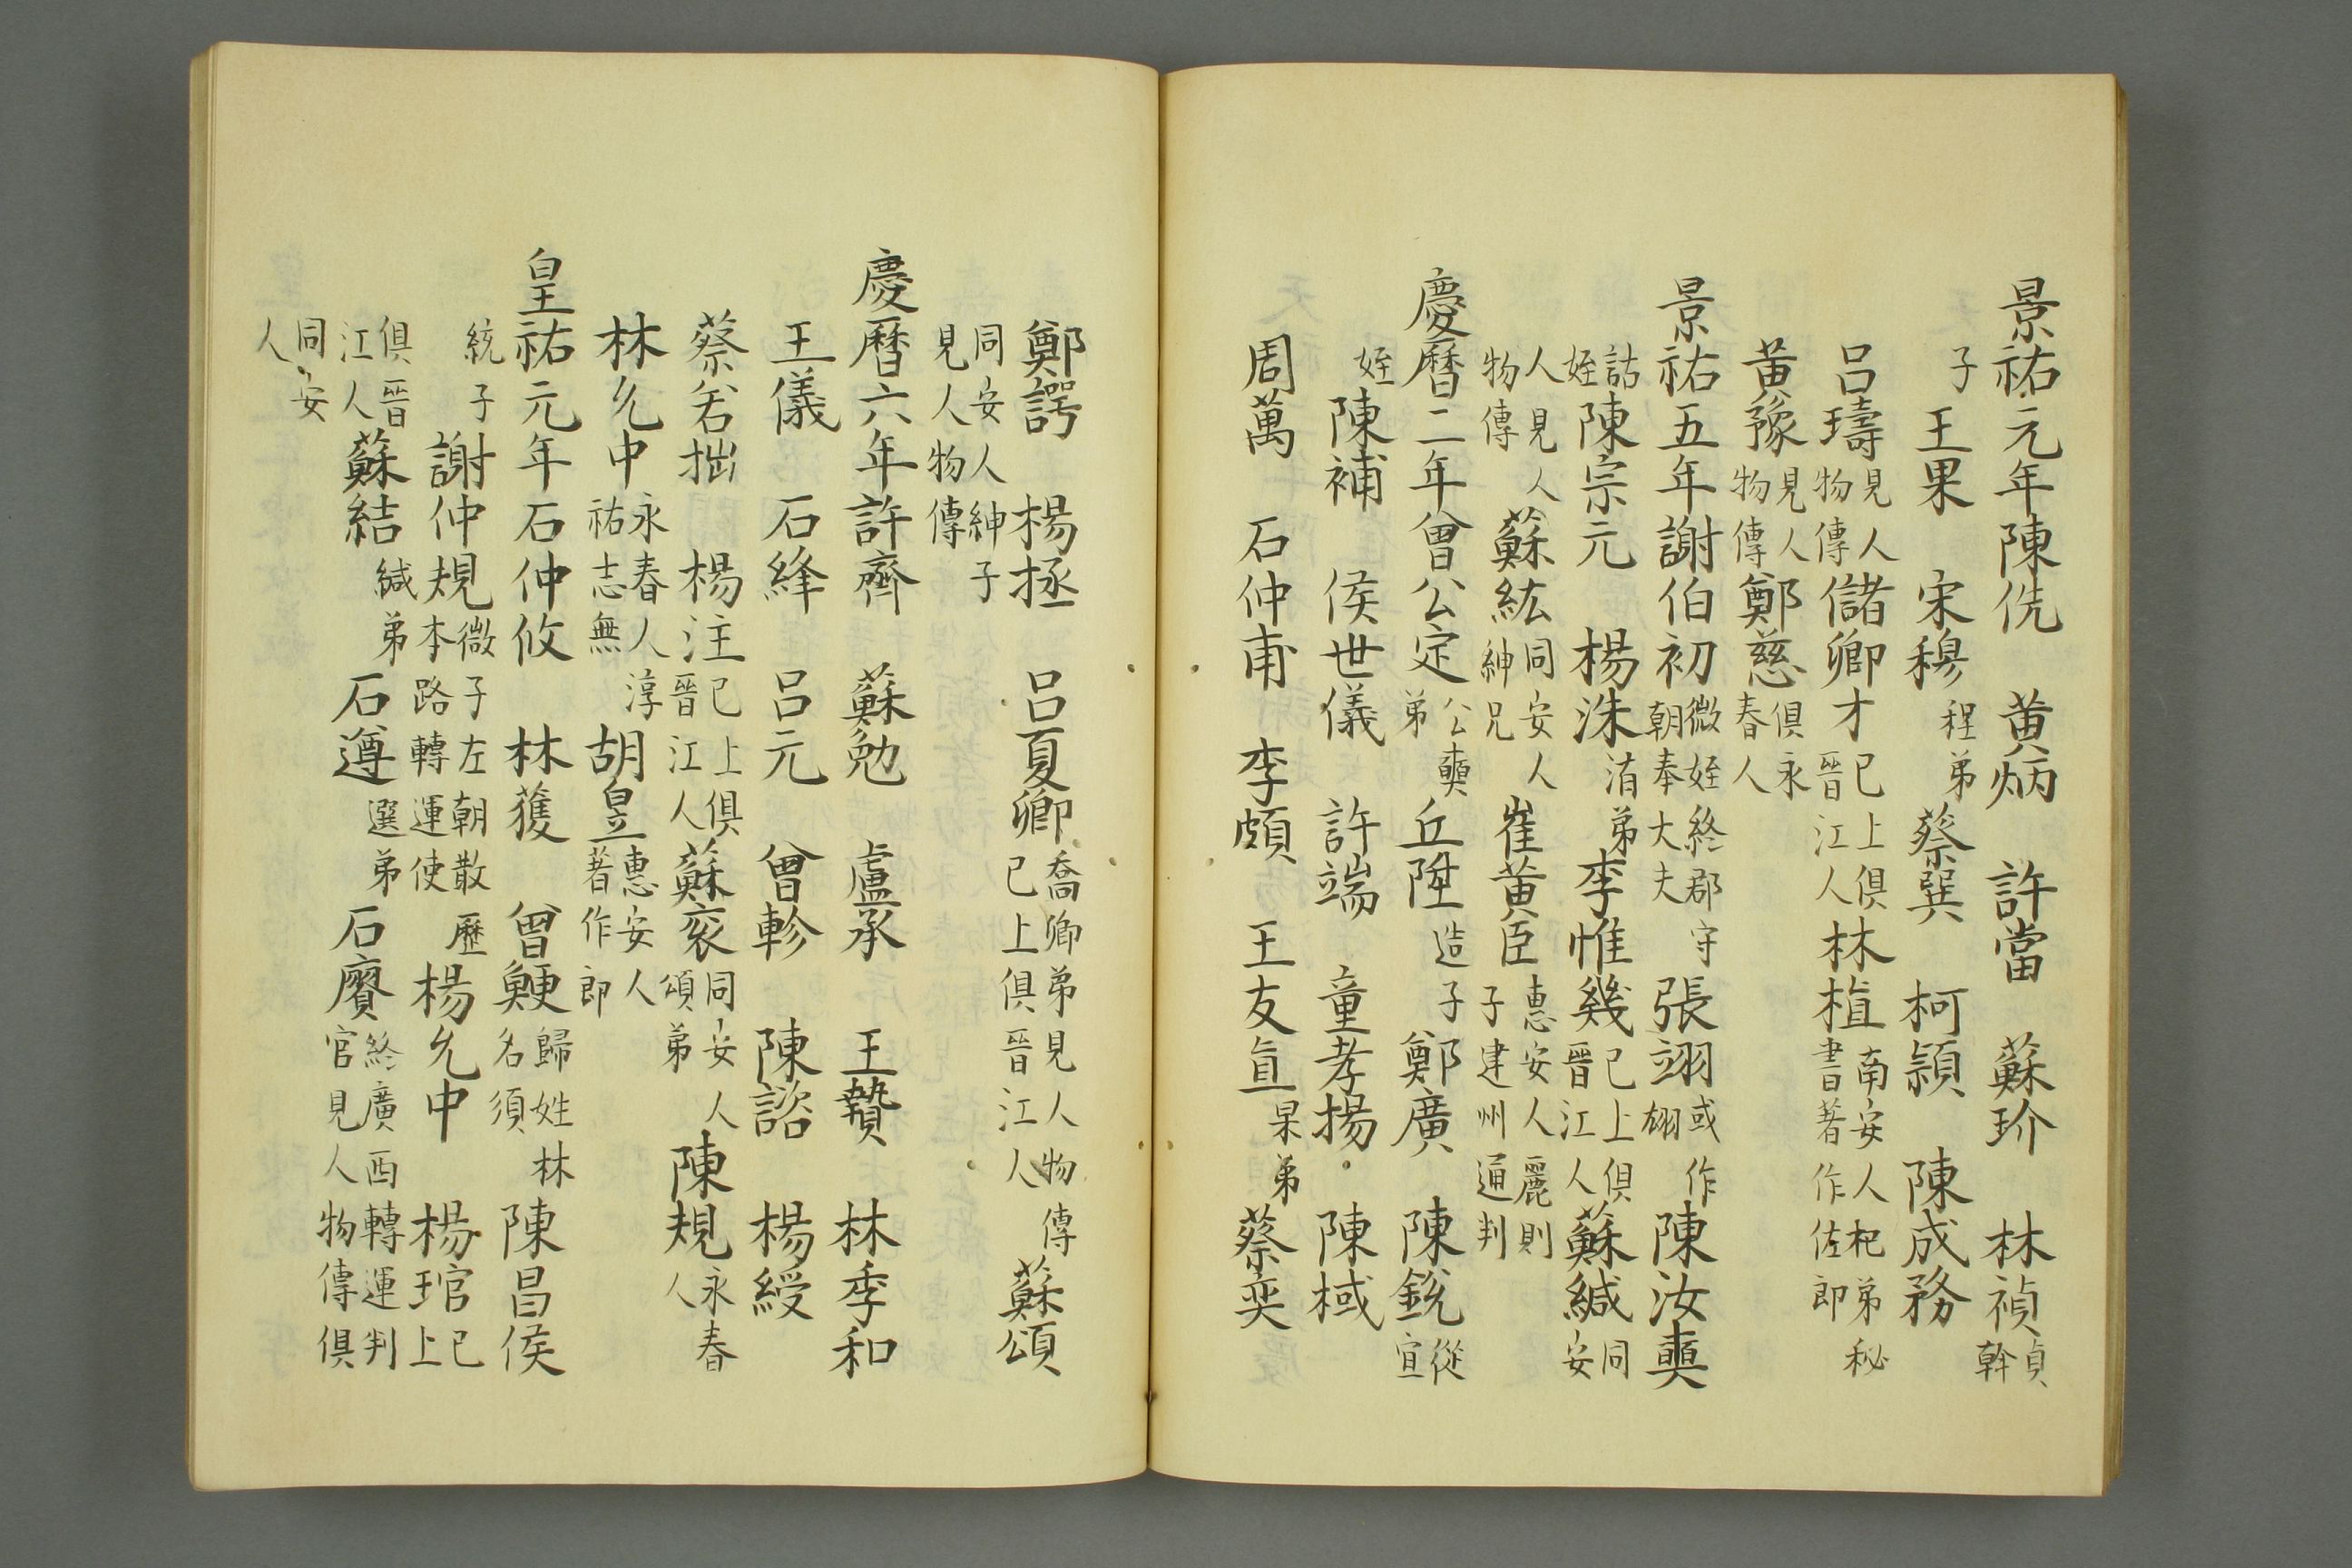 景祐元年陳侁 黄炳 許當 蘇玠 林禎貞幹
子 王果 宋穆程弟 蔡巽 柯潁 陳成務
呂璹見人物傳 儲卿才已上俱晉江人 林植南安人杞弟秘書著作佐郎
黄豫見人物傳 鄭慈俱永春人
景祐五年謝伯初微姪終郡守朝奉大夫 張翊或作翃 陳汝奭
詁姪 陳宗元 楊洙渻弟 李惟幾已上俱晉江人 蘇緘同安
人見人物傳 蘇紘同安人紳兄 崔黄臣惠安人麗則子建州通判
慶曆二年曾公定公奭弟 丘陞造子 鄭廣 陳銳從宣
姪 陳補 侯世儀 許端 童孝揚 陳棫
周萬 石仲甫 李頗 王友直杲弟 蔡奕
鄭諤 楊拯 呂夏卿喬卿弟見人物傳已上俱晉江人 蘇頌
同安人紳子見人物傳
慶曆六年許齊 蘇勉 盧承 王贄 林季和
王儀 石絳 呂元 曾軫 陳諮 楊綬
蔡若拙 楊注已上俱晉江人 蘇衮同安人頌弟 陳規永春人
林允中永春人淳祐志無 胡昱惠安人著作郎
皇祐元年石仲攸 林獲 曾鯁歸姓林名須 陳昌侯
統子 謝仲規微子左朝散本路轉運使歷 楊允中 楊琯已上
俱晉江人 蘇結緘弟 石遵選弟 石賡終廣西轉運判官見人物傳俱
同安人